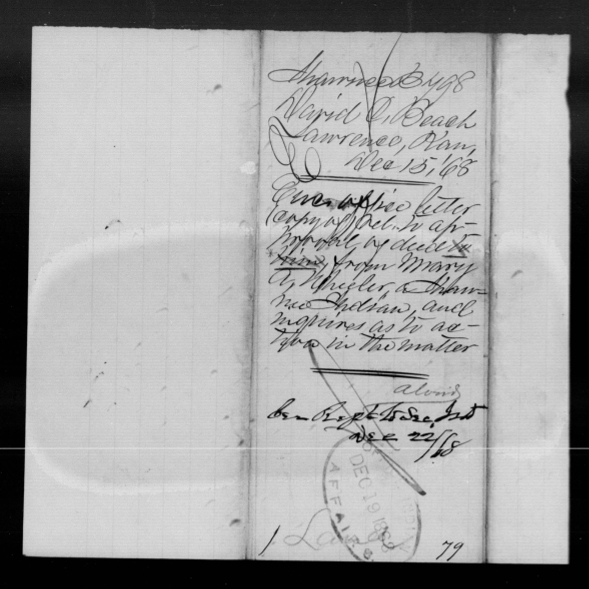 Shawnee B 498
David C. Beach
Lawrence, Kan,
Dec 15, '68
office letter
Copy of Rel. to ap-
proval of deed to
him, from Mary
A. Wheeler, a Shaw-
nee Indian, and
inquires as to ac-
tion in the matter
Rept to Sec. Int
Dec 22/68
DEC 19 1868
AFFAIRS
1 Land 79